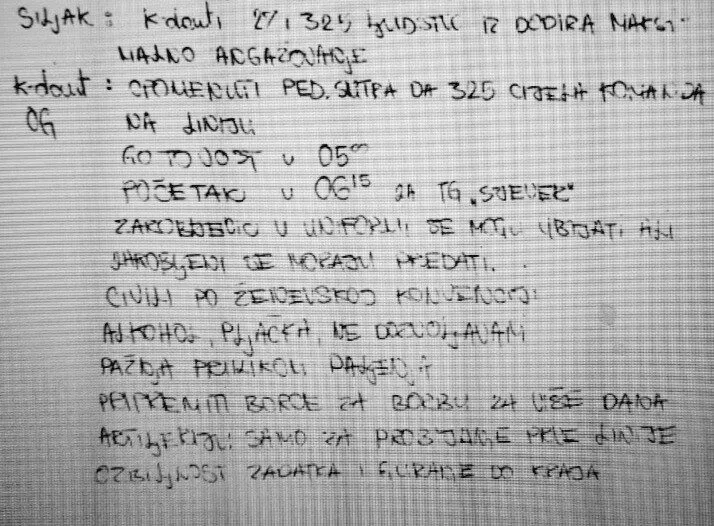 ŠILJAK: K-dant, 27 i 325 LJUDSTVO IZ DODIRA MAKSI-
MALNO ANGAŽOVANJE
K-dant: OPOMENUTI PED. SUTRA DA 325 CIJELA KOMANDA
OG NA LINIJU
GOTOVOST u 05⁰⁰
POČETAK u 06¹⁵ ZA TG „SJEVER“
U UNIFORMI SE MOGU UBIJATI ALI
ZAROBLJENI SE MORAJU PREDATI.
CIVILI PO ŽENEVSKOJ KONVENCIJI
ALKOHOL, PLJAČKA, NE DOZVOLJAVAM
PAŽNJA PRILIKOM PALJENJA
PRIPREMITI BORCE ZA BORBU ZA VIŠE DANA
ARTILJERIJU SAMO ZA PROBIJANJE PRVE LINIJE
OZBILJNOST ZADATKA I GURANJE DO KRAJA